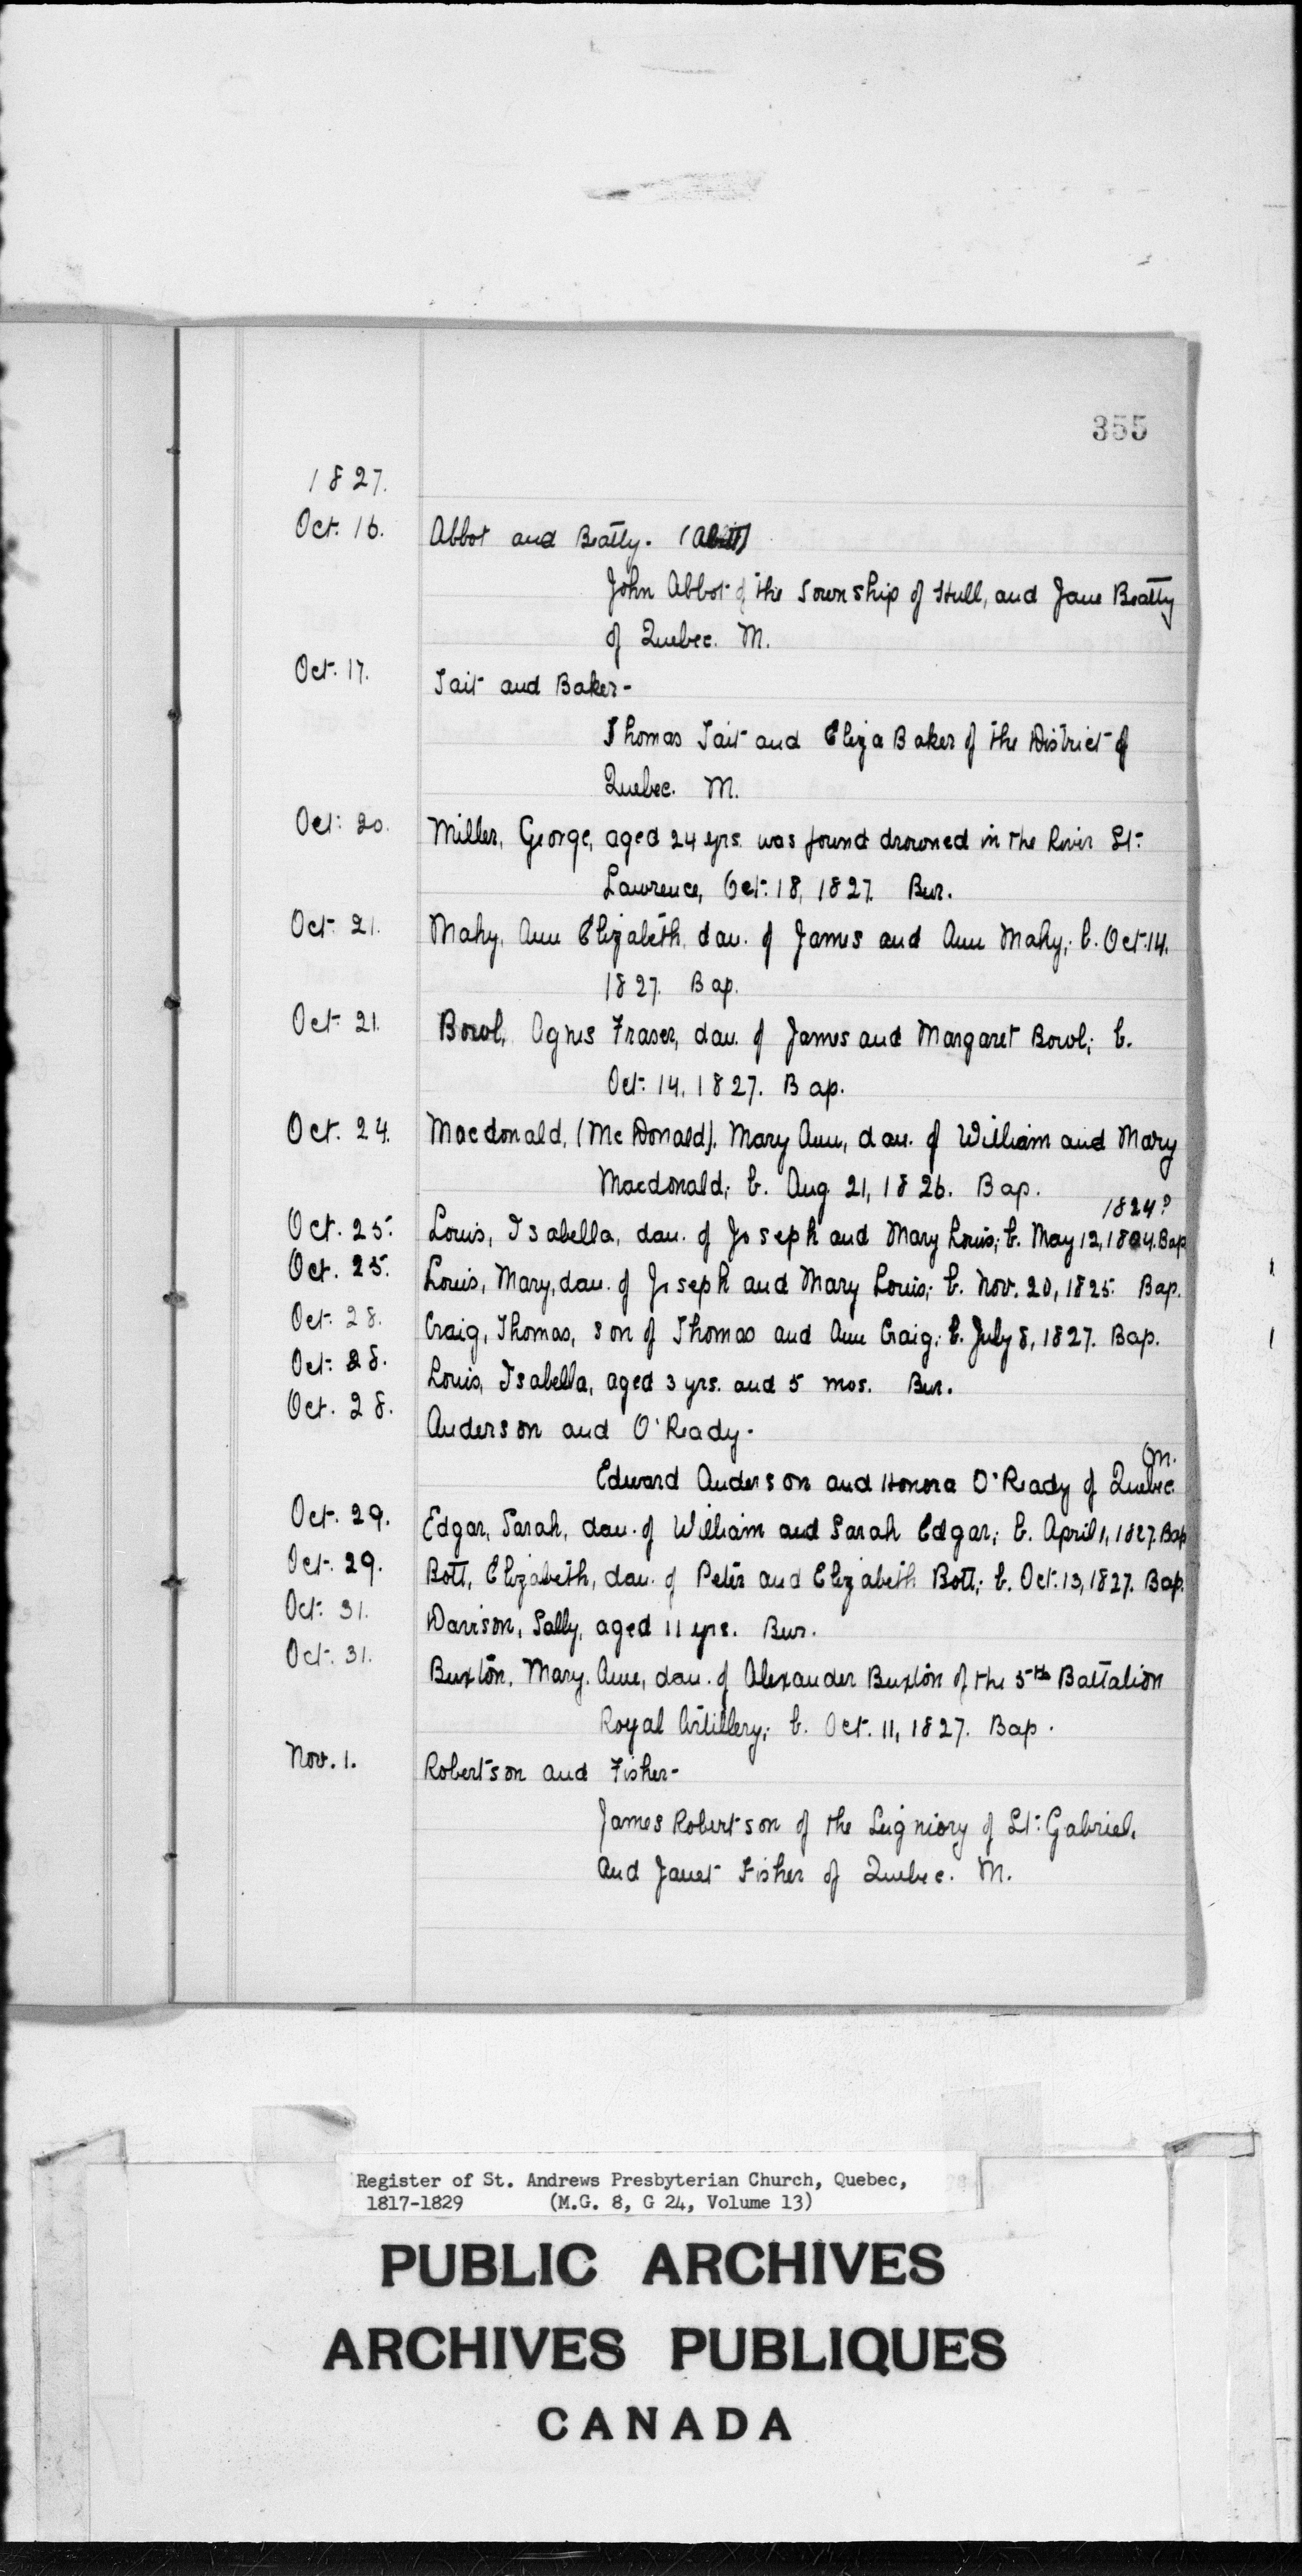 355
1827.
Oct. 16. Abbot and Beatty. (Abitt)
John Abbot of the Township of Hull, and Jane Beatty
of Quebec. M.
Oct. 17. Tait and Baker-
Thomas Tait and Eliza Baker of the District of
Quebec. M.
Oct. 20. Miller, George, aged 24 yrs. was found drowned in the River St.
Lawrence, Oct. 18, 1827. Bur.
Oct. 21. Mahy, Ann Elizabeth, dau. of James and Ann Mahy; b. Oct. 14.
1827. Bap.
Oct. 21. Bowl, Agnes Fraser, dau. of James and Margaret Bowl; b.
Oct. 14, 1827. Bap.
Oct. 24. Macdonald, (McDonald). Mary Ann, dau. of William and Mary
Macdonald; b. Aug 21, 1826. Bap.
1824?
Oct. 25. Louis, Isabella, dau. of Joseph and Mary Louis; b. May 12, 1824. Bap
Oct. 25. Louis, Mary, dau. of Joseph and Mary Louis; b. Nov. 20, 1825. Bap.
Oct. 28. Craig, Thomas, son of Thomas and Ann Craig; b. July 8, 1827. Bap.
Oct. 28. Louis, Isabella, aged 3 yrs. and 5 mos. Bur.
Oct. 28. Anderson and O'Ready.
(M.
Edward Anderson and Honora O'Ready of Quebec.
Oct. 29. Edgar, Sarah, dau. of William and Sarah Edgar; b. April 1, 1827. Bap
Oct. 29. Bott, Elizabeth, dau. of Peter and Elizabeth Bott; b. Oct. 13, 1827. Bap.
Oct. 31. Davison, Sally, aged 11 yrs. Bur.
Oct. 31. Buxton, Mary. Ann, dau. of Alexander Buxton of the 5th Battalion
Royal Artillery; b. Oct. 11, 1827. Bap.
Nov. 1. Robertson and Fisher-
James Robertson of the Seigniory of St. Gabriel,
and Janet Fisher of Quebec. M.
Register of St. Andrews Presbyterian Church, Quebec,
1817-1829 (M.G. 8, G 24, Volume 13)
PUBLIC ARCHIVES
ARCHIVES PUBLIQUES
CANADA